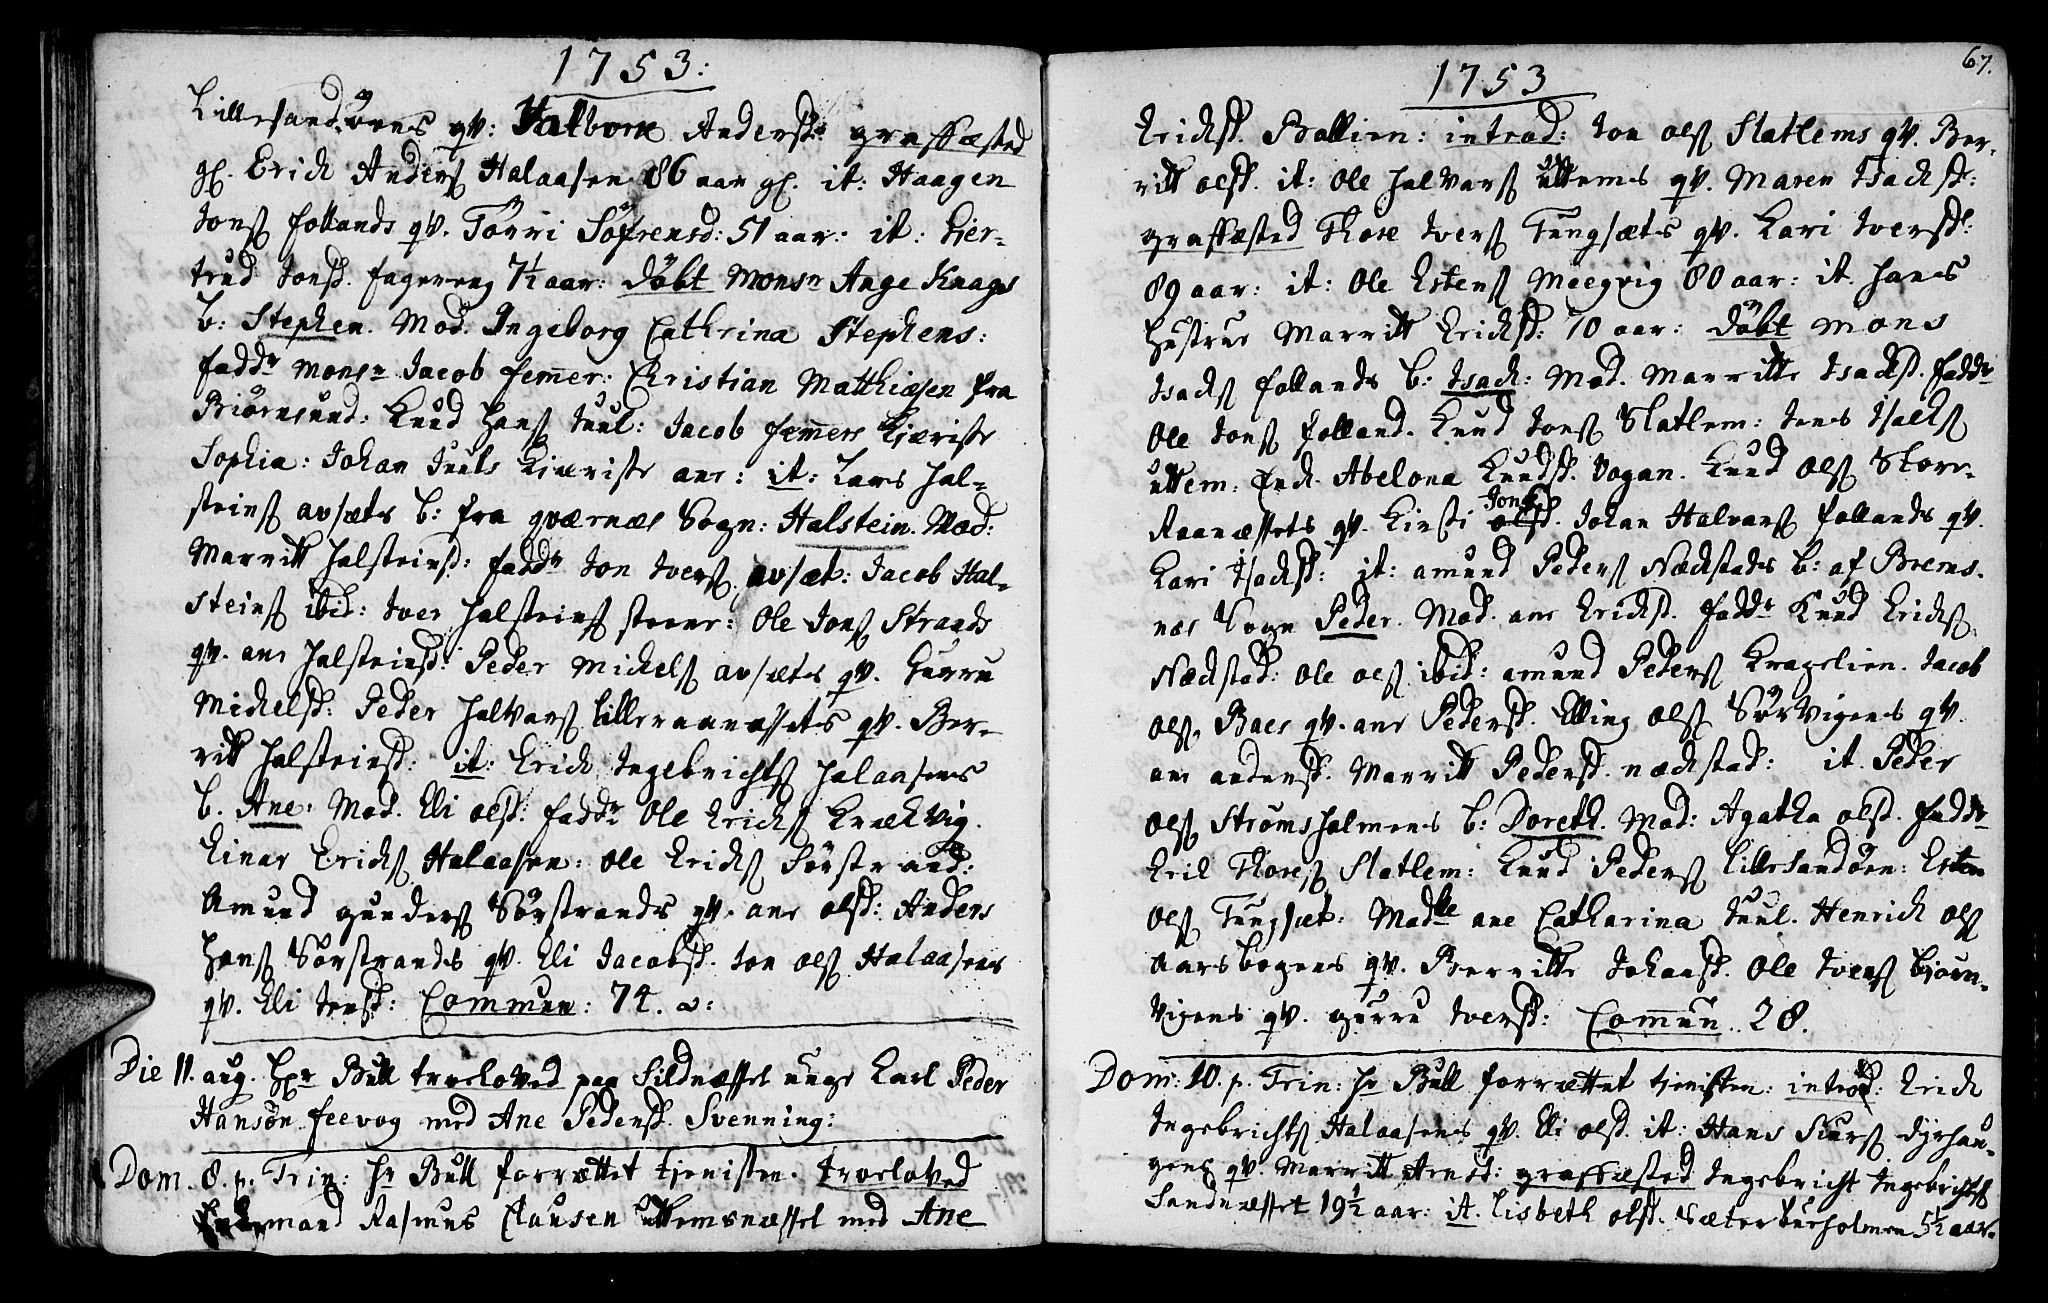 1753:
Lillesandöens qv: Valbore Andersd: graffæsted
gl. Erich Anders Halaasen 86 aar gl. it: Haagen
Jons Follands qv. Torri Söfrensd: 51 aar: it: Gier-
trud Jonsd. Fagereng 7½ aar: döbt Monsr Ange Knags
b: Stephen. Mod. Ingeborg Cathrina Stephens:
faddr Monsr Jacob Femmer: Christian Matthiasen fra
Biörnsund: Knud Hans Juul: Jacob Femmers Kiæriste
Sophia: Johan Juuls Kiæriste ane: it: Lars Hal-
steins avsæts b: fra qværnæs Sogn: Halstein. Mod:
Marritt Halsteinsd: faddr Jon Ivers avsæt: Jacob Hal-
steins ibid: Iver Halsteins steene: Ole Jons Strands
qv. ane Halsteinsd: Peder Michels avsæts qv. Gurru
Michelsd: Peder Halvars Lilleraanæssets qv. Ber-
ritt Halsteinsd: it: Erich Ingebrichts Halaasens
b. Ane: Mod. Eli olsd: faddr Ole Erichs Krækvig.
Einar Erichs Halaasen: Ole Erichs Sörstrand:
Amund gunders Sörstrands qv. ane olsd: Anders
Hans Sörstrands qv. Eli Jacobsd. Jon ols Halaasens
qv. Eli Jensd: Commun: 74. a:
Die 11. aug. Hr Bull troeloved paa Sildnæsset unge Karl Peder
Hansön feevog med Ane Pedersd. Svenning:
Dom. 8. p. Trin: Hr Bull forrættet tjenisten. troeloved
Enkemand Rasmus Clausen Uttemsnæsset med Ane
67.
1753
Erichsd. Bollien: introd: Jon ols Slatlems qv. Ber-
ritt olsd. it: Ole Halvars Uttems qv. Maren Isachsd:
graffæsted Thore Ivers Tungsæts qv. Kari Iversd:
89 aar: it: Ole Estens Meegvig 80 aar: it. Hans
Hustrue Marritt Erichsd: 70 aar: döbt Mons
Isachs Follands b: Isach: Mod. Marritte Isachsd. faddr
Ole Jons Folland. Knud Jons Slatlem: Jens Isachs
uttem: Enche Abelona Knudsd. Vogan. Knud Ols Store-
Raanæssets qv. Kirsti Jonsd. Johan Halvars Follands qv.
Kari Isachsd: it: amund Peders Nædstads b: af Brems-
næs Sogn Peder. Mod. ane Erichsd. faddr Knud Erichs
Nædstad: Ole ols ibid: amund Peders Kragelien. Jacob
ols Baes qv. ane Pedersd. Elling ols Sörvigens qv.
ane andersd. Marritt Pedersd. nædstad: it. Peder
ols Strömsholmens b: Doreth. Mod: Agatha olsd. faddr
Erik Thores Slatlem: Knud Peders Lillesandöen: Esten
ols Tungsæt: Madlle ane Catharina Juul. Henrich ols
Aarsbogens qv. Berritte Johansd. Ole Ivers Bjørn-
vigens qv. gurru Iversd: Comun. 28.
Dom: 10. p. Trin: Hr Bull forrættet tjenisten: introd: Erich
Ingebrichts Halaasens qv. Eli olsd. it: Hans Siurs Dyrhau-
gens qv. Marritt Arnsd: graffæsted Ingebricht Ingebrichts
Sandnæsset 19½ aar: it. Lisbeth olsd. Sæterburholmen 5½ aar.